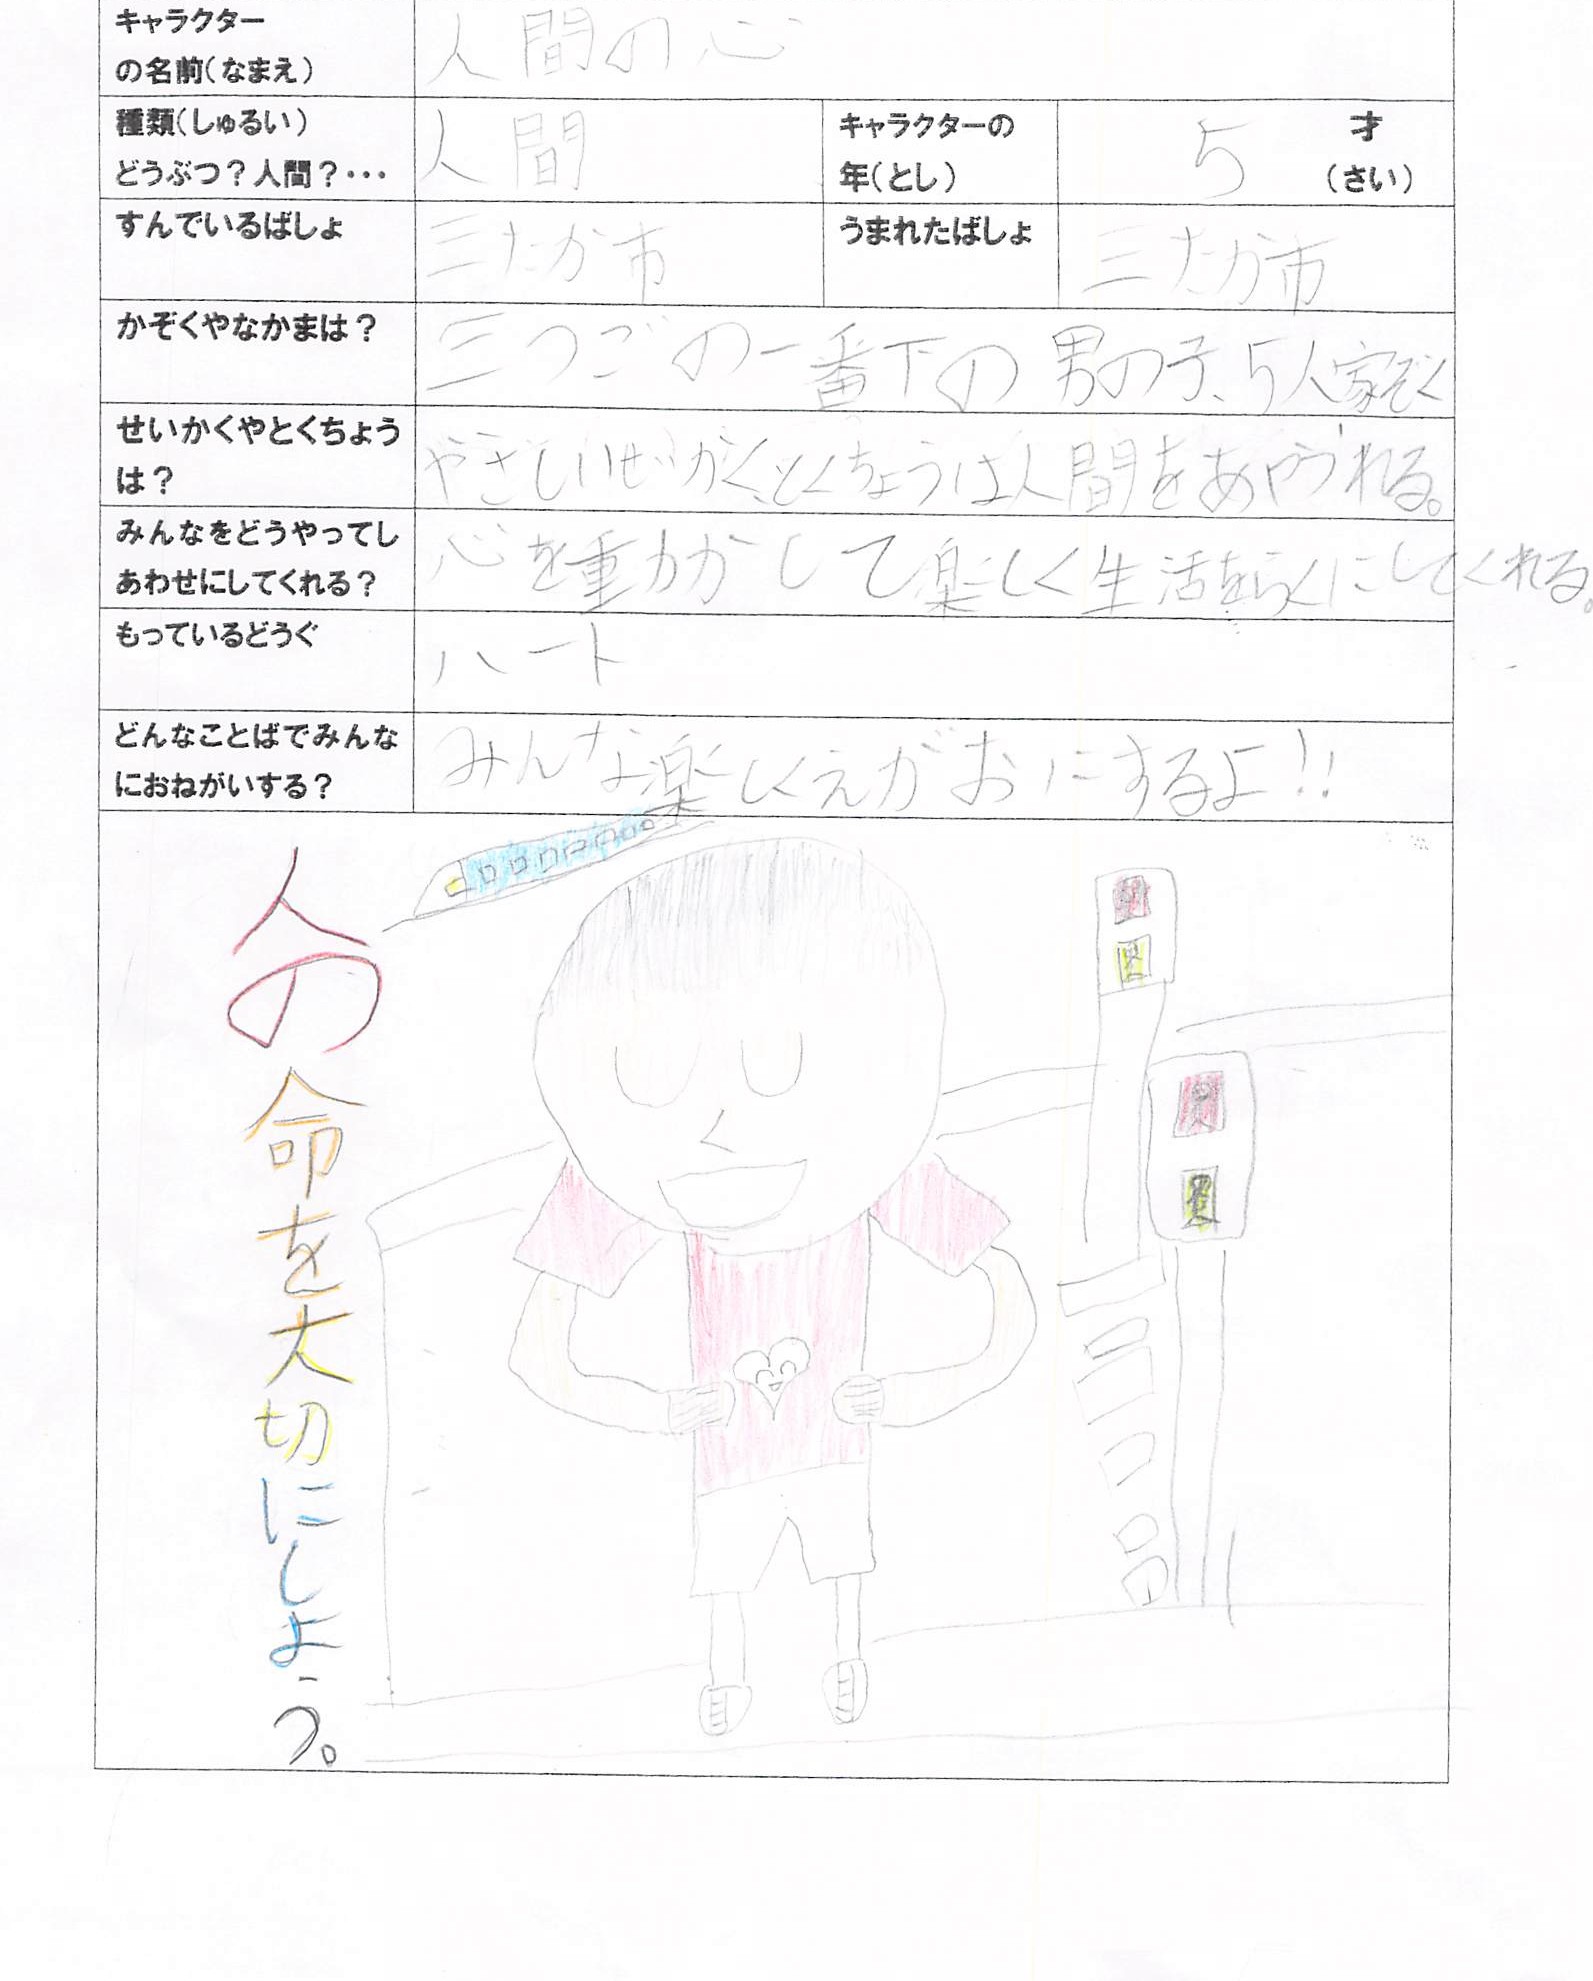 キャラクター
の名前(なまえ)
人間の心
種類(しゅるい)
どうぶつ?人間?・・・
人間
キャラクターの
年(とし)
5
才
(さい)
すんでいるばしょ
三たか市
うまれたばしょ
三たか市
かぞくやなかまは?
三つごの一番下の男の子、5人家ぞく
せいかくやとくちょう
は?
やさしいせいかく、とくちょうは人間をあやつれる。
みんなをどうやってし
あわせにしてくれる?
心を動かして楽しく生活をらくにしてくれる。
もっているどうぐ
ハート
どんなことばでみんな
におねがいする?
みんな楽しくえがおにするよ!!
人の命を大切にしよう。